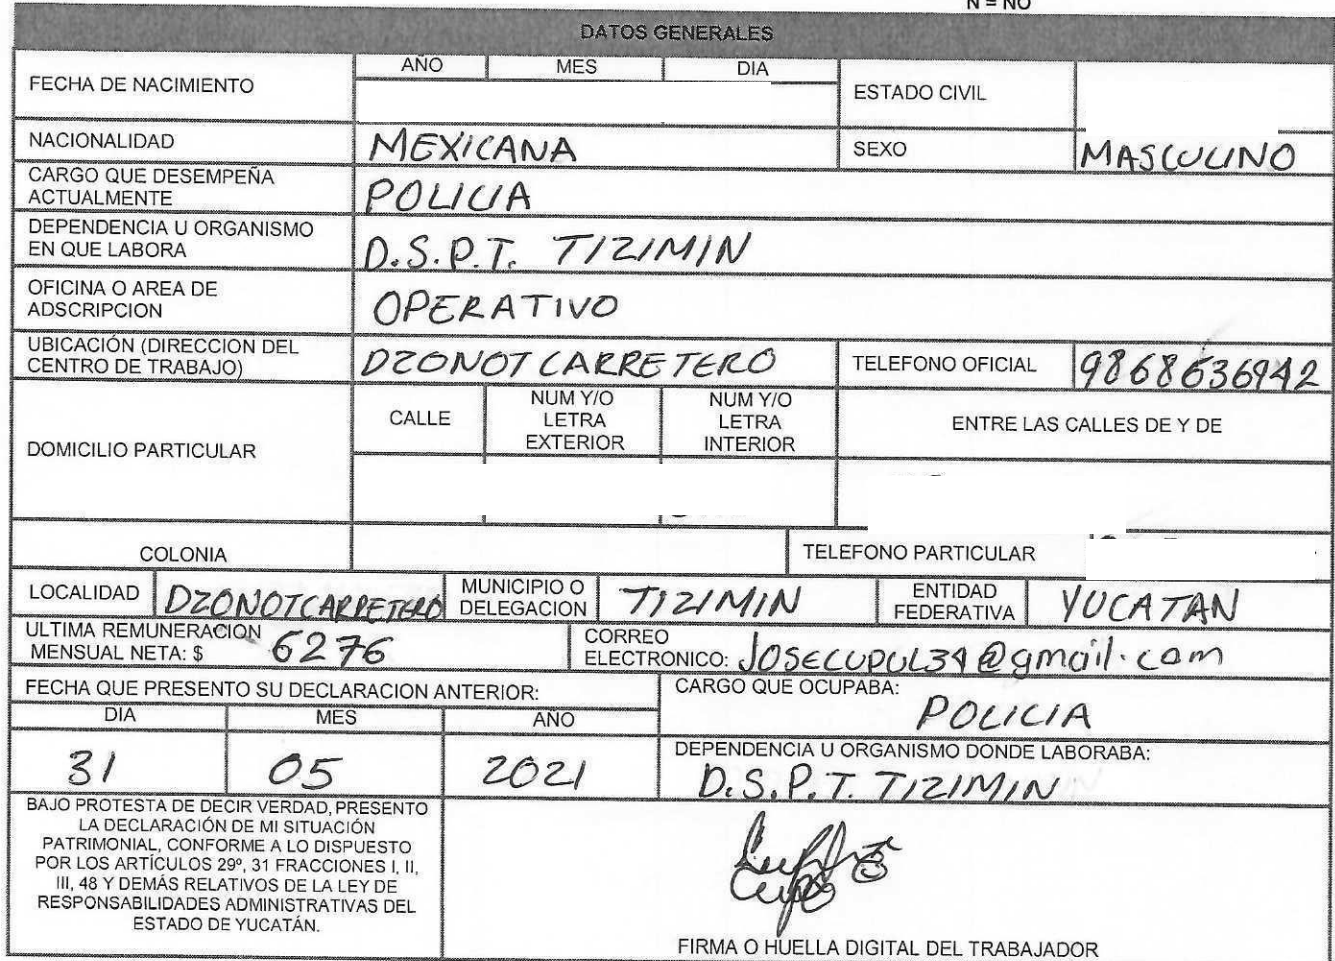 N = NO
DATOS GENERALES
FECHA DE NACIMIENTO
AÑO MES DIA
ESTADO CIVIL
NACIONALIDAD MEXICANA SEXO MASCULINO
CARGO QUE DESEMPEÑA
ACTUALMENTE
POLICIA
DEPENDENCIA U ORGANISMO
EN QUE LABORA
D.S.P.T. TIZIMIN
OFICINA O AREA DE
ADSCRIPCION
OPERATIVO
UBICACIÓN (DIRECCION DEL
CENTRO DE TRABAJO)
DZONOT CARRETERO
TELEFONO OFICIAL 9868636942
DOMICILIO PARTICULAR
CALLE
NUM Y/O
LETRA
EXTERIOR
NUM Y/O
LETRA
INTERIOR
ENTRE LAS CALLES DE Y DE
COLONIA
TELEFONO PARTICULAR
LOCALIDAD DZONOTCARRETERO
MUNICIPIO O
DELEGACION
TIZIMIN
ENTIDAD
FEDERATIVA
YUCATAN
ULTIMA REMUNERACION
MENSUAL NETA: $ 6276
CORREO
ELECTRONICO: JOSECUPUL34@gmail.com
FECHA QUE PRESENTO SU DECLARACION ANTERIOR:
DIA MES AÑO
31 05 2021
CARGO QUE OCUPABA:
POLICIA
DEPENDENCIA U ORGANISMO DONDE LABORABA:
D.S.P.T. TIZIMIN
BAJO PROTESTA DE DECIR VERDAD, PRESENTO
LA DECLARACIÓN DE MI SITUACIÓN
PATRIMONIAL, CONFORME A LO DISPUESTO
POR LOS ARTÍCULOS 29º, 31 FRACCIONES I, II,
III, 48 Y DEMÁS RELATIVOS DE LA LEY DE
RESPONSABILIDADES ADMINISTRATIVAS DEL
ESTADO DE YUCATÁN.
FIRMA O HUELLA DIGITAL DEL TRABAJADOR